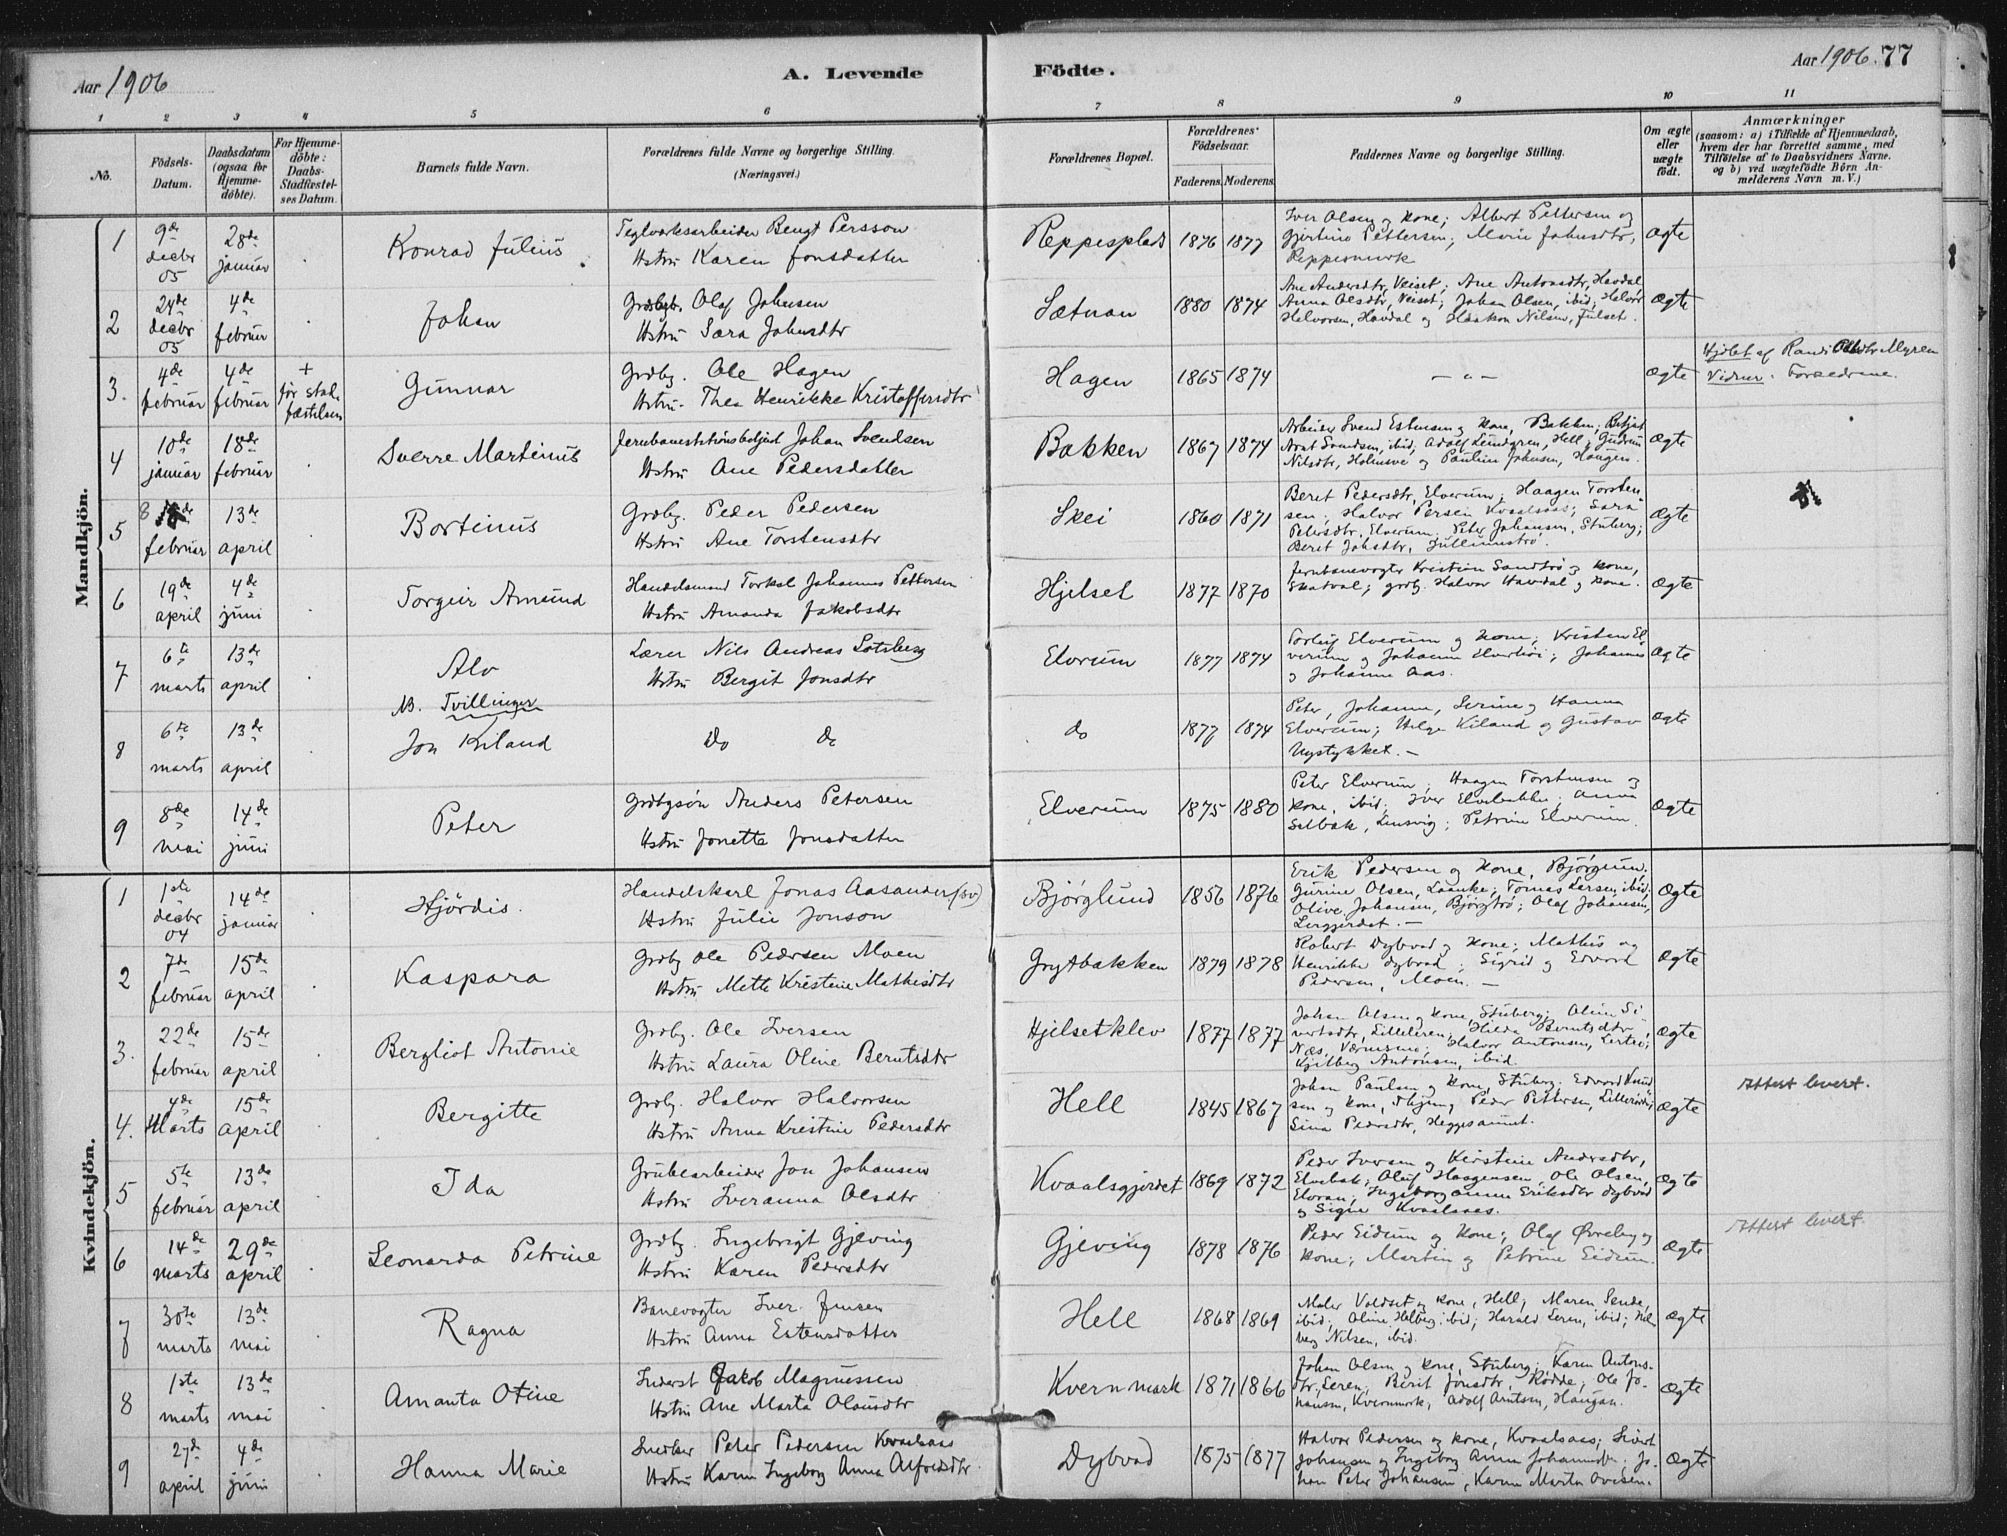 Aar 1906
A. Levende
Födte.
Aar 1906. 77
1 2 3 4 5 6 7 8 9 10 11
No.
Födsels-Datum.
Daabsdatum (ogsaa for Hjemmedöbte).
For Hjemmedöbte: Daabs-Stadfæstelses Datum.
Barnets fulde Navn.
Forældrenes fulde Navne og borgerlige Stilling. (Næringsvei.)
Forældrenes Bopæl.
Forældrenes' Födselsaar.
Faderens. Moderens.
Faddernes Navne og borgerlige Stilling.
Om ægte eller uægte födt.
Anmærkninger
(saasom: a) i Tilfælde af Hjemmedaab, hvem der har forrettet samme, med Tilföielse af to Daabsvidners Navne. og b) ved uægtefödte Börn Anmelderens Navn m. V.)
Mandkjön.
1 9de decbr 05 28de januar Konrad Julius Teglverksarbeider Bengt Persson Hstru Karen Jonsdatter Reppesplads 1876 1877 Iver Olsen og kone; Albert Pettersen og Gjertine Pettersen; Marie Johnsdtr, Reppesmark Ægte
2 24de decbr 05 4de februar Johan Grdbgbr. Olaf Johnsen Hstru Sara Johnsdtr Sætnan 1880 1874 Ane Andersdtr, Veiset; Ane Antonsdtr, Havdal Anna Olsdtr, Veiset; Johan Olsen, ibid; Halvor Halvorsen, Havdal og Haakon Nilsen, Julset. Ægte
3. 4de februar 4de februar + før stadfæstelsen Gunnar Grdbg. Ole Hagen Hstru. Thea Henrikke Kristoffersdtr Hagen 1865 1874 — " — Ægte Hjdbt af Randi Olsdtr Myren Vidner: Forældrene.
4 10de januar 18de februar Sverre Martinus Jernbanestationsbetjent Johan Svendsen Hstru Ane Pedersdatter Bakken 1867 1874 Arbeider Svend Estensen og kone, Bakken; Betjent Arnt Svendsen, ibid; Adolf Lundgren, Hell; Gudrun Nilsdtr, Holmsve og Pauline Johnsen, Haugen. Ægte
5 8de februar 13de april Bortinus Grdbg. Peder Pedersen Hstru Ane Torstensdtr Skei 1860 1871 Beret Pedersdtr, Elverum; Haagen Torstensen; Halvor Persen Kvaalsaas; Sara Petersdtr, Elverum; Peter Johansen, Stuberg; Beret Johsdtr, Ægte
6 19de april 4de juni Torgeir Amund Handelsmand Torkel Johannes Pettersen Hstru Amanda Jakobsdtr Hjelset 1877 1870 Jernbanevogter Kristian Sandtrø og kone, Skatval; grdbg. Halvor Havdal og kone. Ægte
7 6te marts 13de april Alv Lærer Nils Andreas Lotsberg Hstru Bergit Jonsdtr Elvrum 1877 1874 Torleif Elverum og kone; Kristen Elverum og Johanna Elverhøi; Johannes og Johanne Aas. Ægte
NB. Tvillinger
8 6te marts 13de april Jon Kiland Do Do do 1877 1874 Peter, Johanna, Serine og Hanna Elverum; Helge Kiland og Gustav Nystykket. — Ægte
9 8de mai 14de juni Peter Grdbgsøn Anders Petersen Hstru Jonetta Jonsdatter Elverum 1875 1880 Peter Elverum, Haagen Torstensen og kone, ibid; Iver Elvebakke; Anna Selbæk, Lensvig; Petrine Elverum. Ægte
Kvindekjön.
1 1ste decbr 04 14de januar Hjördis. Handelskarl Jonas Aasander (sv) Hstru Julie Jonson Bjørglund 1856 1876 Erik Pedersen og kone, Bjørglund; Gurine Olsen, Laanke; Tomas Larsen, ibid; Olive Johansen, Bjørgtrø; Olaf Johansen, Lergjerdet. — Ægte
2 7de februar 15de april Kaspara Grdbg Ole Pedersen Moen Hstru Mette Kristine Mathisdtr Grytbakken 1879 1878 Robert Dybvad og kone; Mathis og Henrikke Dybvad; Sigrid og Edvard Pedersen, Moen. — Ægte
3. 22de februar 15de april Bergliot Antonie Grdbg. Ole Iversen Hstru Laura Oline Berntsdtr Hjelsetklev 1877 1877 Johan Olsen og kone, Stuberg; Oline Sivertsdtr, Lilleleren; Hilda Berntsdtr, Næs, Værnesmo; Halvor Antonsen, Ægte
4. 4de Marts 15de april Bergitte Grdbg. Halvor Halvorsen Hstru Anna Kristine Pedersdtr Hell 1845 1867 Johan Paulsen og kone, Stuberg; Edvard Knudsen og kone, Peder Pettersen, Sina Pedersdtr, Heggesaunet. Ægte Attest levert.
5 5te februar 13de april Ida Grubearbeider Jon Johansen Hstru Iveranna Olsdtr Kvaalsgjerdet 1869 1872 Peder Iversen og Kirstine Andersdtr, Elvebak; Oluf Haagensen, Ole Olsen, Elvran; Ingeborganna Eriksdtr Dybvad og Signe Kvaalsaas. Ægte
6 14de marts 29de april Leonarda Petrine Grdbg. Ingebrigt Gjeving Hstru Karen Pedersdtr Gjeving 1878 1876 Peder Eidum og kone; Olaf Øvreby og kone; Martin og Petrine Eidum. Ægte Attest levert.
7 30te marts 13de mai Ragna Banevogter Iver Jensen Hstru Anna Estensdatter Hell 1868 1869 Maler Voldset og kone, Hell; Maren Sende, ibid; Oline Helberg ibid; Harald Leren, ibid; Nilsen, ibid. Ægte
8 1ste marts 13de mai Amanta Otine Inderst Jakob Magnussen Hstru Ane Marta Olausdtr Kvernmark 1871 1866 Johan Olsen og kone, Stuberg; Karen Antonsdtr, Leren; Berit Jonsdtr, Rødde; Ole Johansen, Kvernmark; Adolf Arntsen, Haugan. Ægte
9 27de april 4de juni Hanna Marie Snedker Peter Pedersen Kvaalsaas Hstru Karen Ingeborg Anna Alfredsdtr Dybvad 1875 1877 Halvor Pedersen og kone, Kvaalsaas; Sivert Johansen og Ingeborg Anna Johannesdtr; Johan Peter Johansen, Karen Marta Ovesen. Ægte